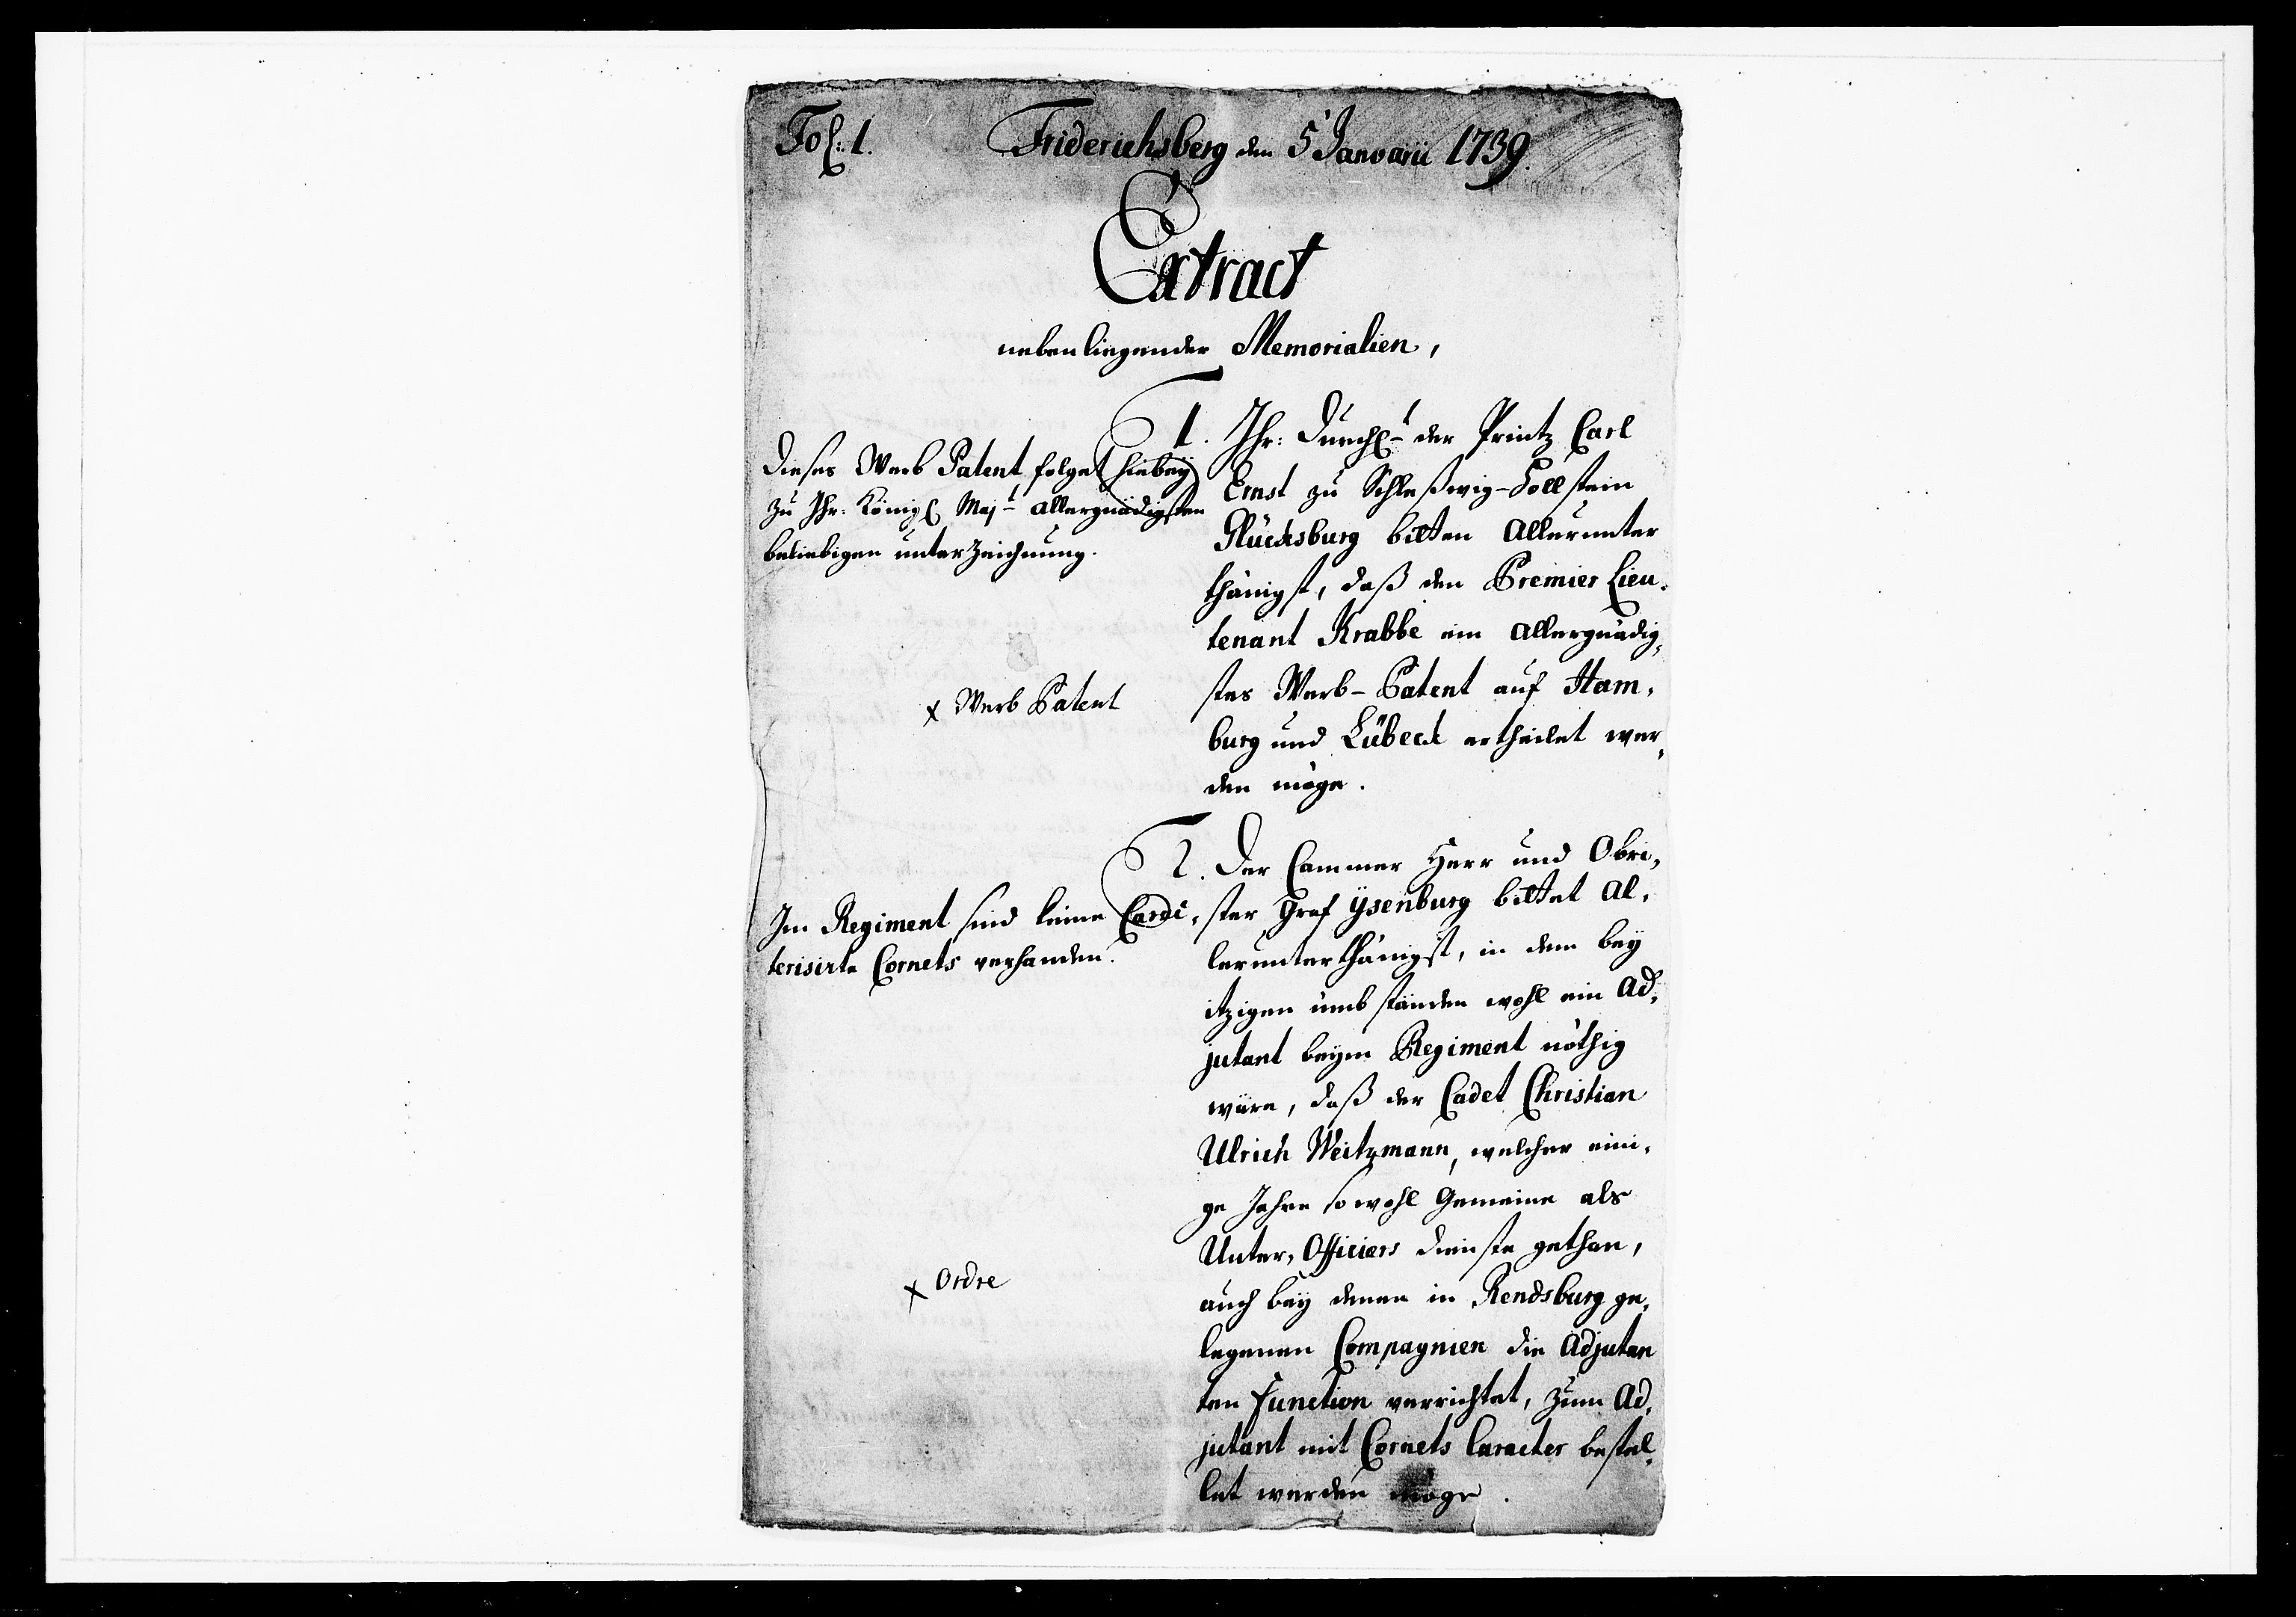 Fol: 1.
Friderichsberg den 5 Januarii 1739.
Extract
nebenliegender Memorialien,
1. Ihr: Durchl-t der Printz Carl
Ernst zu Schleßwig-Hollstein
Glücksburg bitten allerunter
thänigst, daß den Premier Lieu-
tenant Krabbe ein allergnädig-
stes Werb-Patent auf Ham-
burg und Lübeck ertheilet wer-
den möge.
Dieses Werb Patent folget hiebey
zu Ihr: Königl Maj-t allergnädigsten
beliebigen unterzeichnung.
x Werb Patent
2. Der Cammer Herr und Obri-
ster Graf ÿsenburg bittet al-
lerunterthänigst, in dem beÿ
itzigen umbständen wohl ein Ad-
jutant beÿm Regiment nöthig
wäre, daß der Cadet Christian
Ulrich Weitzmann, welcher eini-
ge Jahre sowohl Gemeine als
Unter-Officiers dienste gethan,
auch beÿ denen in Rendsburg ge-
legenen Compagnien die Adjutan
ten Function verrichtet, zum Ad-
jutant mit Cornets Caracter bestel-
let werden möge.
Im Regiment sind keine
terisirte Cornets verhanden.
x Ordre